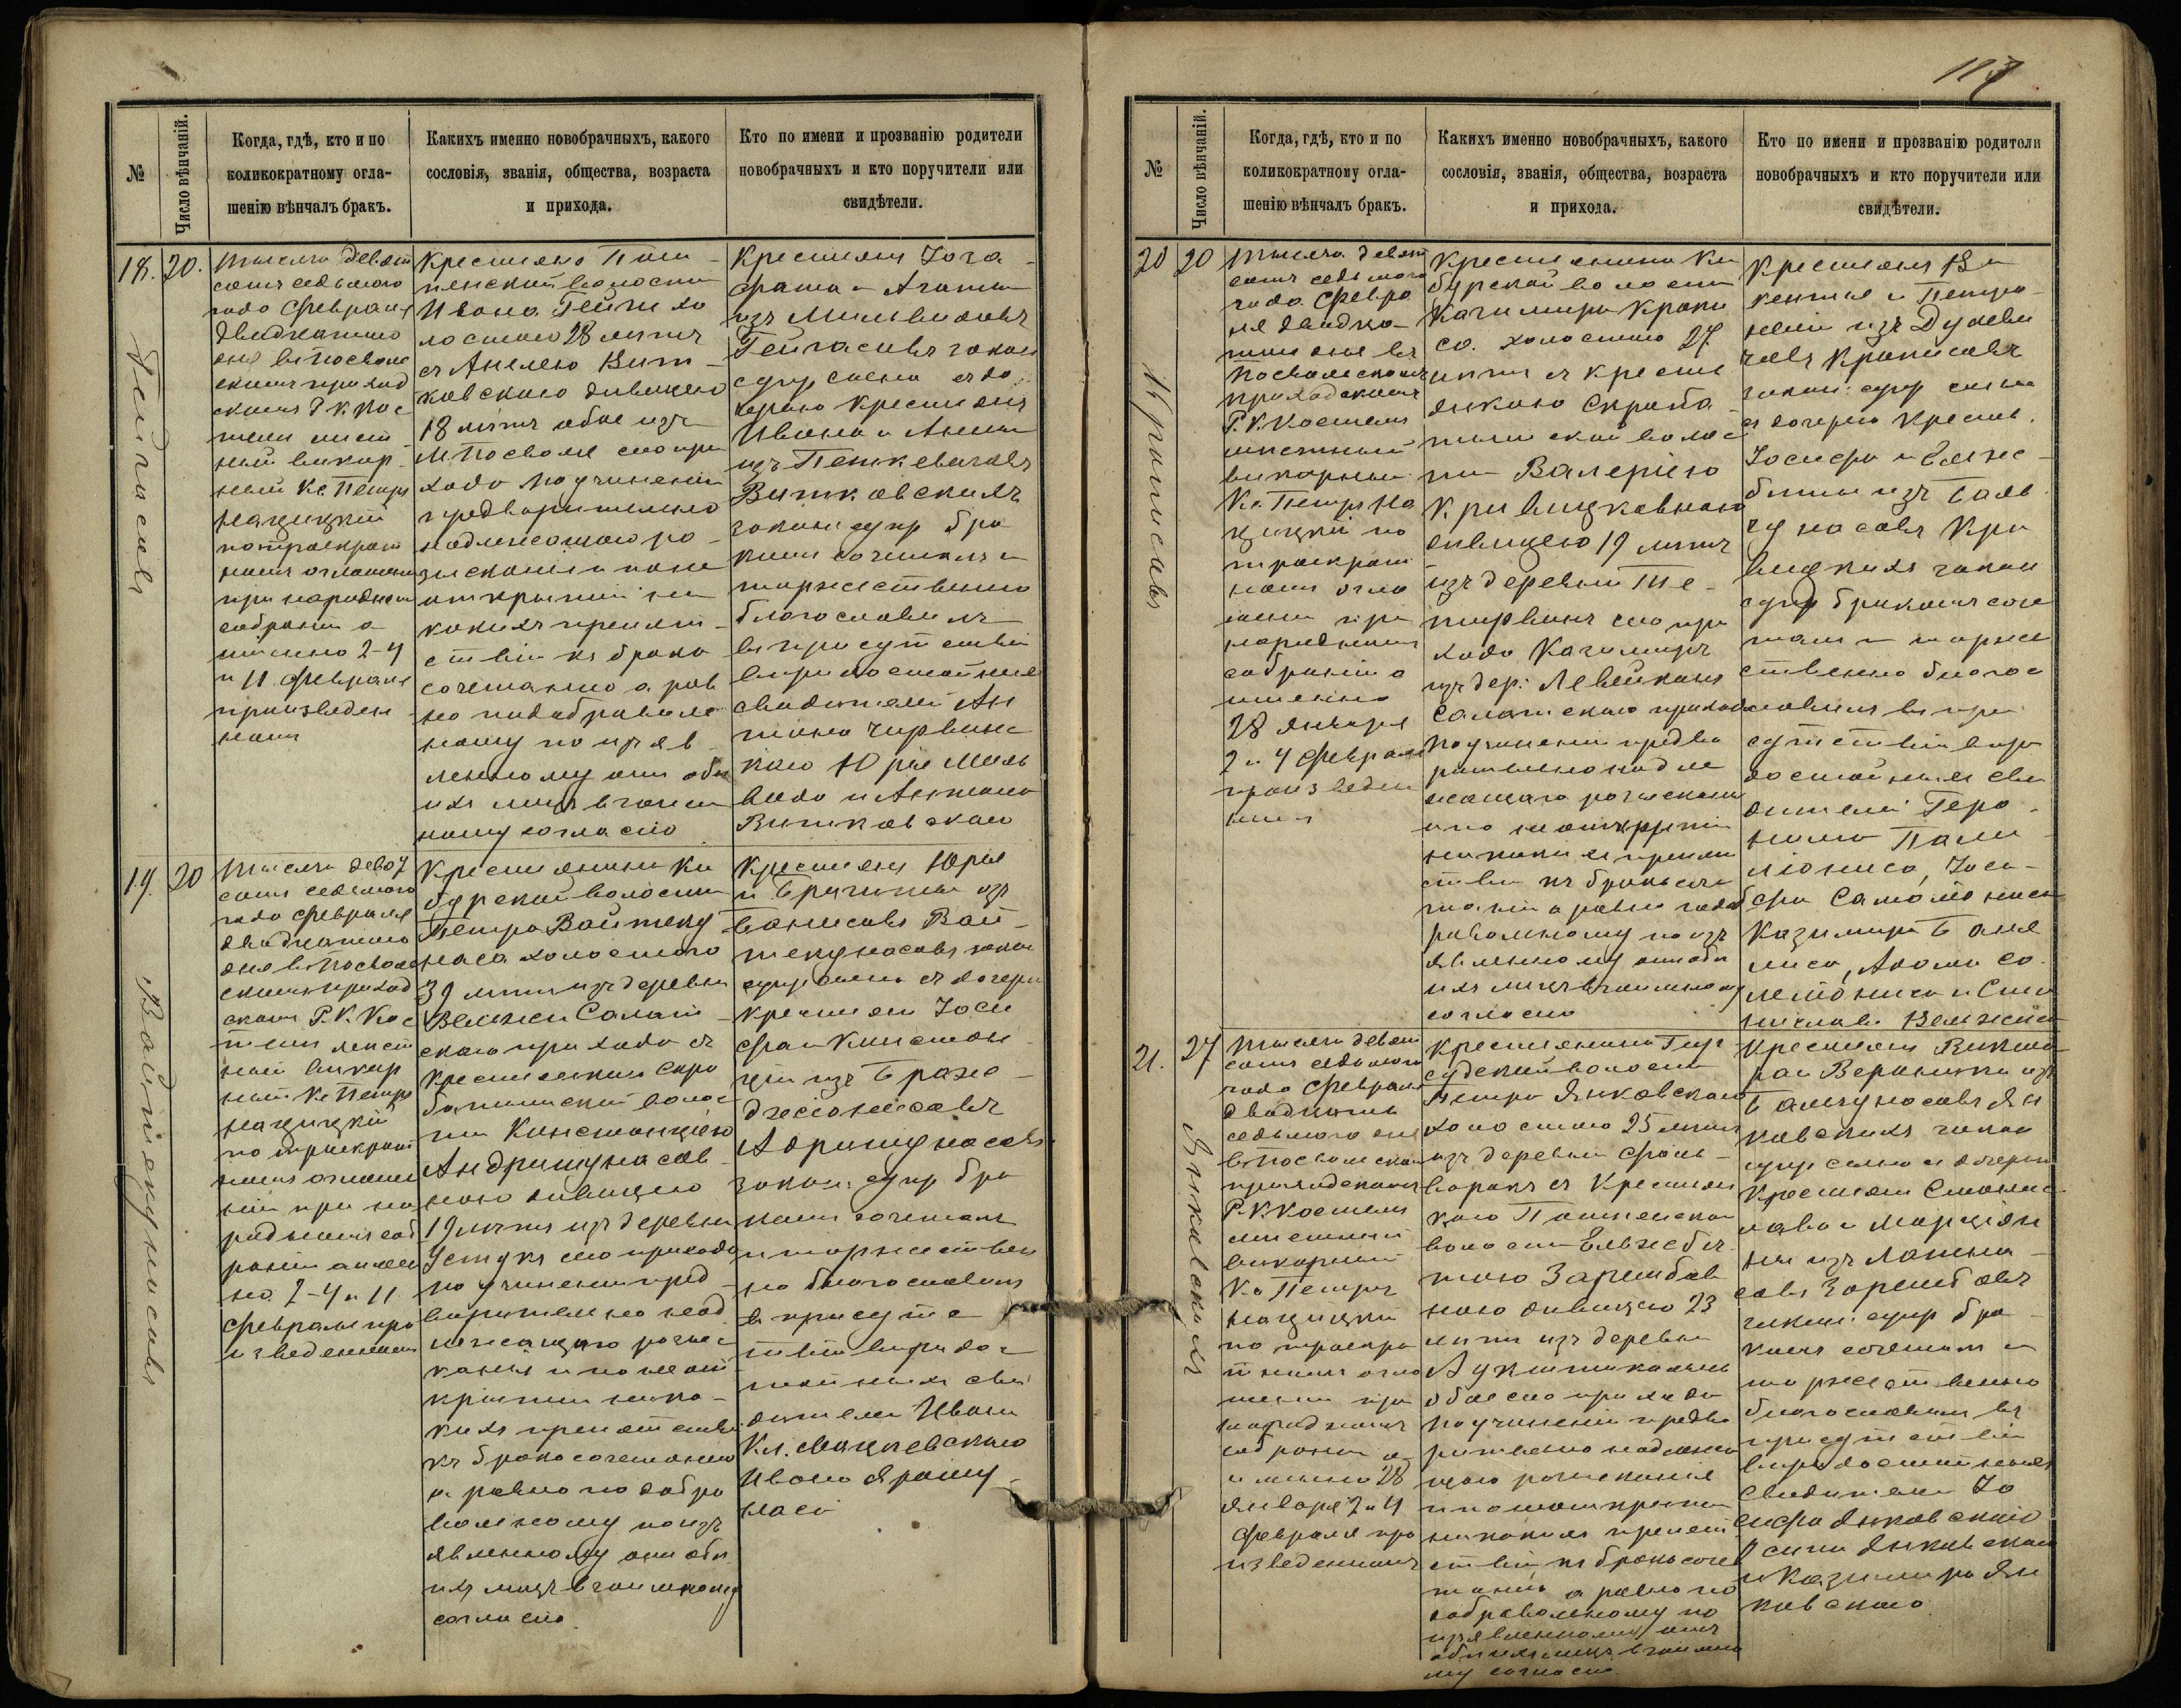 №
Число вѣнчаній.
Когда, гдѣ, кто и по
коликократному огла-
шенію вѣнчалъ бракъ.
Какихъ именно новобрачныхъ, какого
сословія, званія, общества, возраста
и прихода.
Кто по имени и прозванію родители
новобрачныхъ и кто поручители или
свидѣтели.
18. 20.
Тысяча девят
сотъ седьмого
года Февраля
двадцатого
дня в Посволь
скомъ приход
скомъ Р К Кос
телѣ мѣст
ный викар
ный Кс Петръ
Нацицкій
по троекрат
номъ оглашеніи
при народномъ
собраніи а
именно 2-4
и 11 Февраля
произведен
номъ
Крестьяно
волости
Ивана
лостого 28 летъ
съ Анелею Вит
ковскою дивицею
18 летъ обое изъ
М Посволя сего при
хода по учиненіи
предварительно
надлежащаго ро
зысканія и по не
открытіи ни
какихъ препят
ствій къ брако
сочетанію а рав
но по добраволь
ному по изъяв
ленному оти обо
ихъ лицъ взаим
ному согласію
Крестьянъ Іоса
фата и Агаты
изъ Мильвидовъ
Гейгасовъ закон
супр сына съ до
черью Крестьянъ
Ивана и Анны
изъ Петкевичовъ
Витковскихъ
закон супр бра
комъ сочеталъ и
торжественно
благословилъ
в присутствіи
вѣродостойныхъ
свидѣтелей Ан
тона Червинс
каго Юрія Миль
вида и Антона
Витковскаго
19. 20
Войтекунасовъ
Тысяча девят
сотъ седьмого
года Февраля
двадцатого
дня в Посволь
скомъ приход
скомъ Р. К. Кос
телѣ мѣст
ный викар
ный Кс Петръ
Нацицкій
по троекрат
номъ оглаше
ніи при на
родномъ соб
раніи а имен
но 2-4 и 11
Февраля про
изведенномъ
Крестьянина Ки
бурской волости
Петра Войтеку
наса холостого
39 летъ изъ деревни
Салат
скаго прихода съ
Крестьянкою Скро
ботишской волос
ти Констанціею
Андришунасов
ною дивицею
19 летъ изъ деревни
сего прихода
по учиненіи пред
варительно над
лежащаго розыс
канія и по неот
крытіи ника
кихъ препятствій
къ бракосочетанію
а равно по добро
вольному по изъ
явленному оти обо
ихъ лицъ взаимному
согласію
Крестьянъ Юрія
и Бригиты изъ
Банисовъ Вой
текунасовъ закон
супр сына съ дочерью
крестьянъ Іоси
фа и Констан
ціи изъ
Адришунасовъ
закон: супр бра
комъ сочеталъ
и торжествен
но благословилъ
в присутс
твіи вѣродос
тойныхъ сви
дѣтелей Ивана
Ивана Ярошу
наса
117
№
Число вѣнчаній.
Когда, гдѣ, кто и по
коликократному огла-
шенію вѣнчалъ бракъ.
Какихъ именно новобрачныхъ, какого
сословія, званія, общества, возраста
и прихода.
Кто по имени и прозванію родители
новобрачныхъ и кто поручители или
свидѣтели.
20 20
Тысяча девят
сотъ седьмого
года Февра
ля двадца
того дня въ
Посвольскомъ
приходскомъ
Р. К. Костелѣ
мѣстный
викарный
Кс. Петръ На
цицкій по
троекрат
номъ огла
шеніи при
народномъ
собраніи а
именно
28 Января
2 и 4 Февраля
произведен
номъ
Крестьянина Ки
бурской волости
Казимира Крапи
са. холостого 27
летъ съ кресть
янкою Скроба
тишской волос
ти Валеріею
Кривицковною
дивицею 19 летъ
изъ деревни Те
тирвинъ сего при
хода, Казимиръ
изъ дер: Левейканъ
Салатскаго прихода
по учиненіи предва
рительно надле
жащаго розысканія
и по неоткрытіи
никакихъ препят
ствій къ бракосоче
танію а равно по доб
ровольному по изъ
явленному оти обо
ихъ лицъ взаимному
согласію
Крестьянъ Ви
кентія и Петро
нели изъ
Краписовъ
закон: супр сына
съ дочерью Крестьян.
Іосифа и Ельжс
беты изъ
Кри
вицкихъ закон
супр бракомъ соче
талъ и торже
ственно благос
ловилъ в при
сутствіи вѣро
достойныхъ сви
дѣтелей Геро
нима Пали
люниса, Іоси
фа
Казимира
Адама
и Ста
нислава
21. 27
Янковскихъ
Тысяча девят
сотъ седьмого
года Февраля
двадцать
седьмого дня
в Посвольскомъ
приходскомъ
Р. К. Костелѣ
мѣстный
викарный
Кс Петръ
Нацицкій
по троекра
тномъ огла
шеніи при
народномъ
собраніи а
именно 28
Января 2 и 4
Февраля про
изведенномъ
Крестьянина
волости
Петра Янковскаго
холостого 25 летъ
изъ деревни Фоль
варокъ съ Крестьян
кою
волости Ельжбе
тою Зарембов
ною дивицею 23
летъ изъ деревни
обое сего прихода
по учиненіи предва
рительно надлежа
щаго розысканія
и по неоткрытіи
никакихъ препят
ствій къ бракосоче
танію а равно по
добровольному по
изъявленному отъ
обоихъ лицъ взаимно
му согласію
Крестьянъ Викто
ра и Вероники изъ
Ян
ковскихъ закон
супр сына съ дочерью
Крестьянъ Станис
лава и Марціан
ны изъ
Зарембовъ
закон: супр бра
комъ сочеталъ и
торжественно
благословилъ въ
присутствіи
вѣродостойныхъ
свидѣтелей Іо
сифа Янковскаго
Осипа Янковскаго
и Казимира Ян
ковскаго